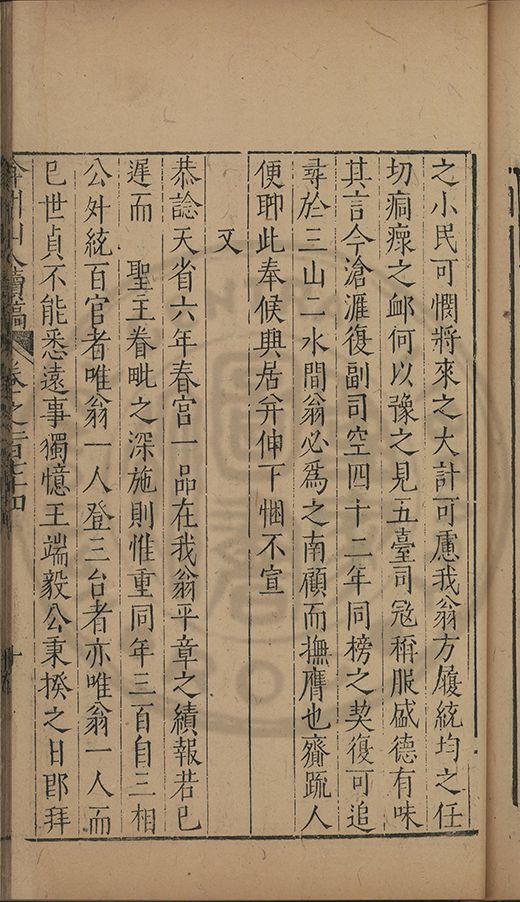 之小民可憫將來之大計可慮我翁方履統均之任
切痌瘝之䘏何以豫之見五臺司寇稱服盛德有味
其言今滄涯復副司空四十二年同榜之契復可追
尋於三山二水間翁必爲之南顧而撫膺也齎䟽人
便聊此奉候興居并伸下悃不宣
又
恭諗天省六年春官一品在我翁平章之績報若已
遲而 聖主眷毗之深施則惟重同年三百自三相
公外統百官者唯翁一人登三台者亦唯翁一人而
已世貞不能悉遠事獨憶王端毅公秉揆之日郎拜
弇州山人續稿 卷之二百四 十